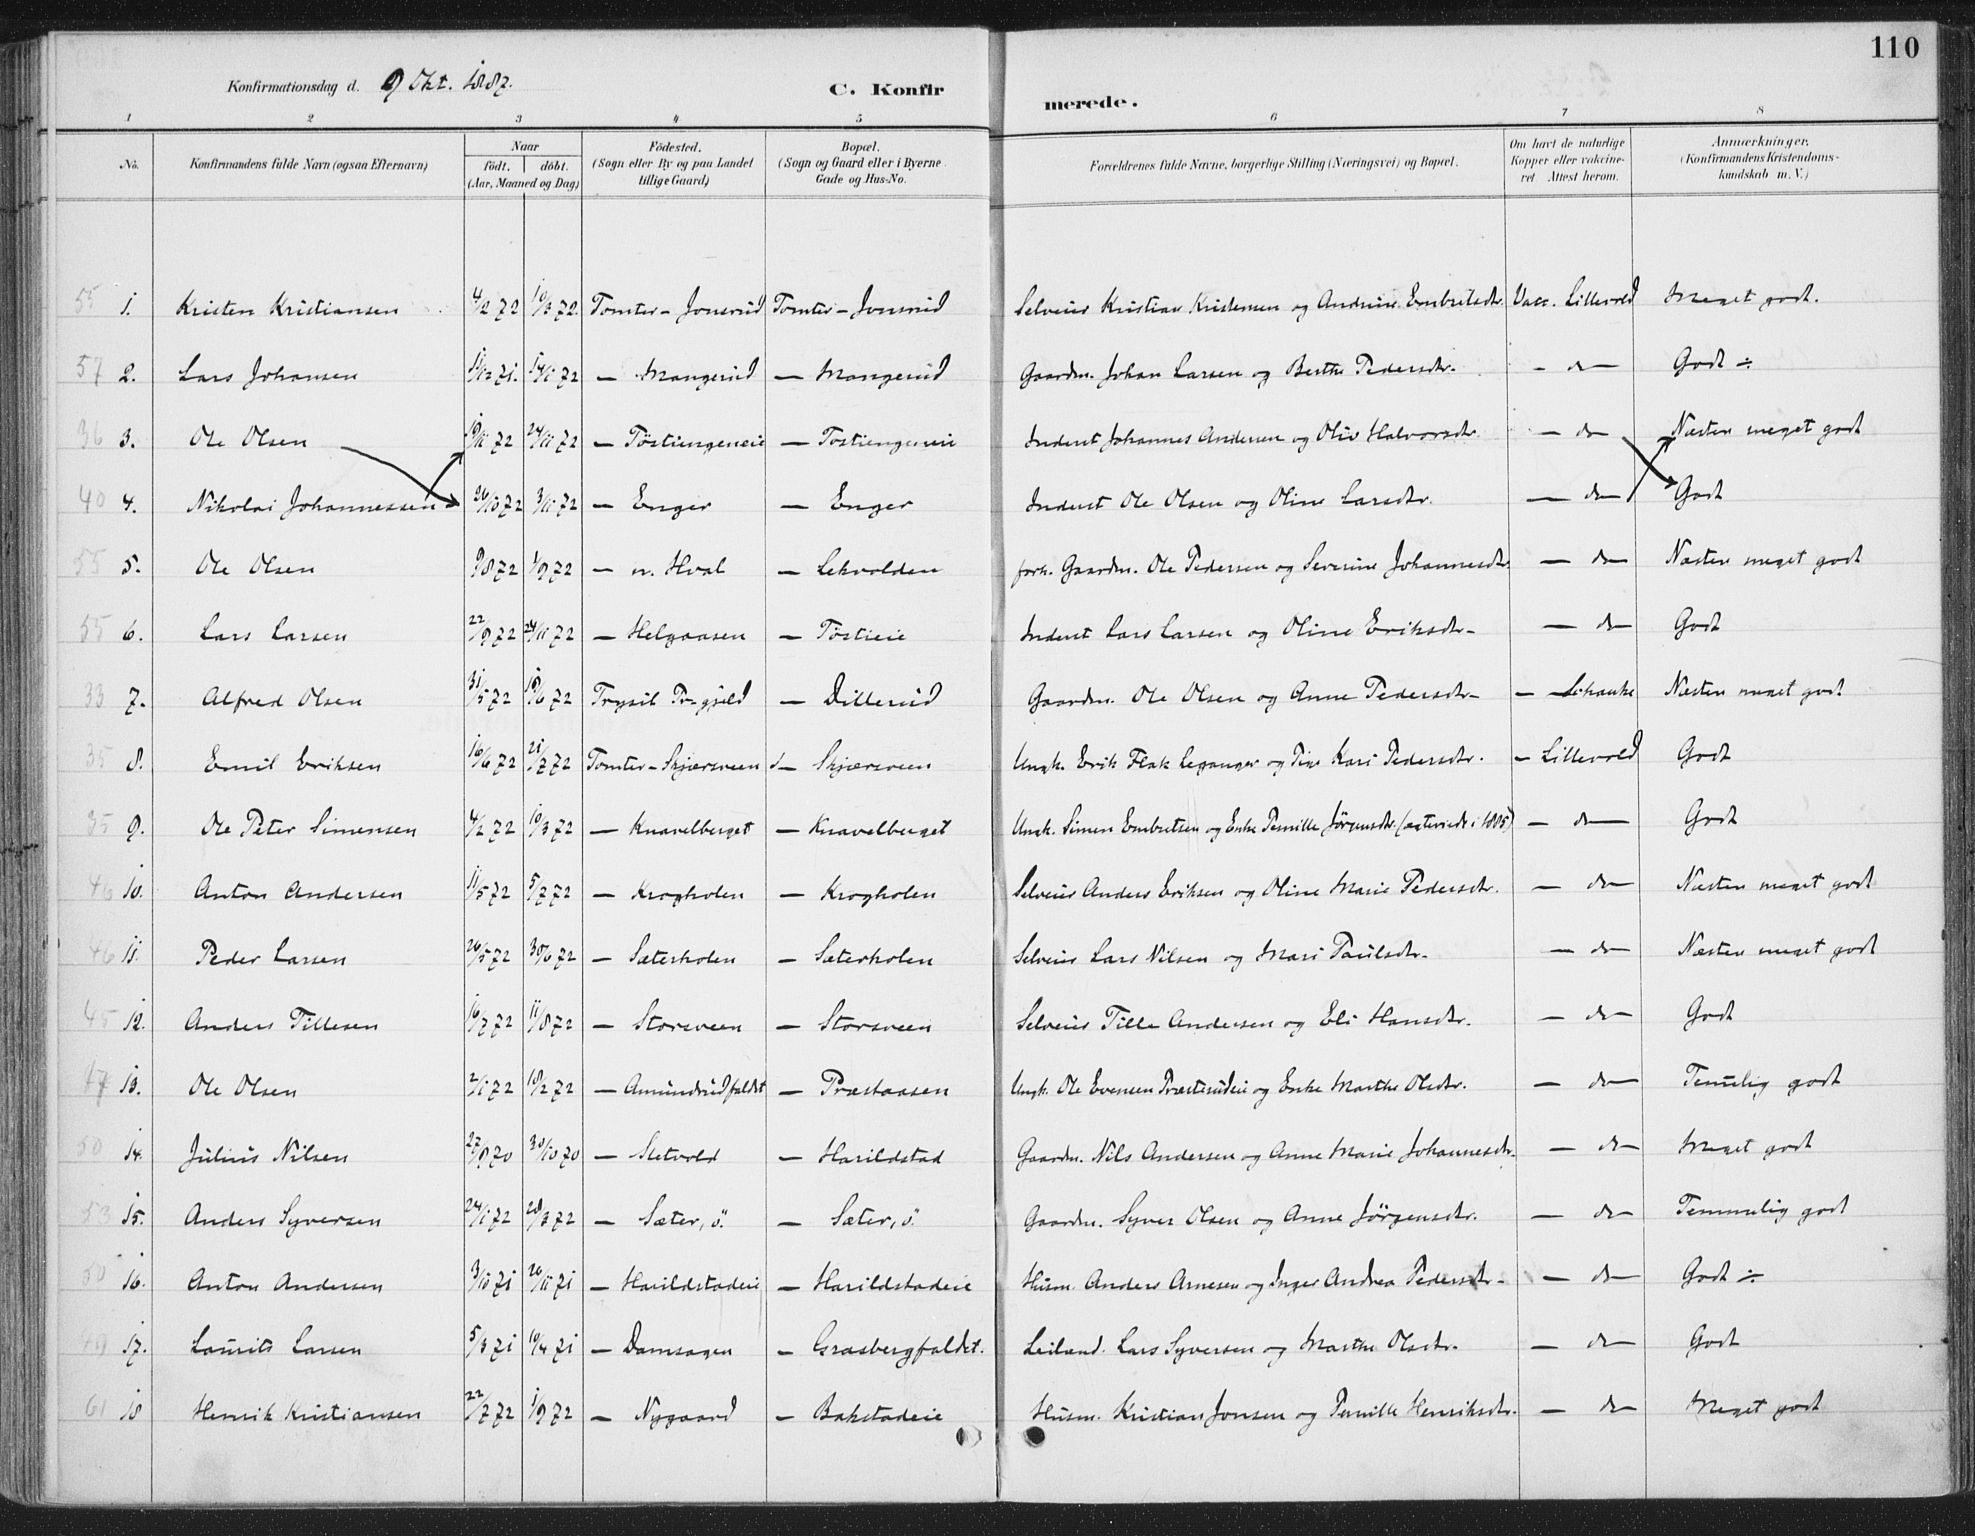 110
Konfirmationsdag d. 9 Okt. 1887.
C. Konfirmerede.
1 2 3 4 5 6 7 8
No. Konfirmandens fulde Navn (ogsaa Efternavn) Naar født. døbt. (Aar, Maaned og Dag) Fødested. (Sogn eller By og paa Landet tillige Gaard) Bopæl. (Sogn og Gaard eller i Byerne Gade og Hus-No. Forældrenes fulde Navne, borgerlige Stilling (Næringsvei) og Bopæl. Om havt de naturlige Kopper eller vakcineret. Attest herom. Anmærkninger. (Konfirmandens Kristendomskundskab m. V.)
55 1. Kristen Kristiansen 4/2 72 10/3 72. Tomter – Jonsrud Tomter – Jonsrud Selveier Kristian Kristensen og Andrine Embretsdtr. Vacc. Lillevold Meget godt.
57 2. Lars Johansen 11/12 71. 14/1 72 — Mangerud — Mangerud Gaardm. Johan Larsen og Berthe Pedersdtr. – do – Godt ÷
36 3. Ole Olsen 19/11 72 24/11 72 — Tøstiengeneie — Tostiengeneie Inderst Johannes Andersen og Oliv Halvorsdtr. – do Næsten meget godt
40 4. Nikolai Johannessen 26/10 72 3/11 72 — Enger — Enger Inderst Ole Olsen og Oline Larsdtr. — do – Godt
55 5. Ole Olsen 9/8 72 1/9 72 — n. Hval — Lekvolden forh. Gaardm. Ole Pedersen og Severine Johannesdtr. — do – Næsten meget godt
55 6. Lars Larsen 22/9 72 24/11 72 — Helgaasen — Tøstieie Inderst Lars Larsen og Oline Eriksdtr. — do – Godt
33 7. Alfred Olsen 31/5 72 16/6 72 Trysil Prgjeld — Dillerud Gaardm. Ole Olsen og Anne Pedersdtr. – Schanke Næsten meget godt
35 8. Emil Eriksen 16/6 72 21/7 72 Tomter – Skjærsveen – Skjærsveen Ungk. Erik Flak Leganger og Pige Kari Pedersdtr. – Lillevold Godt
35 9. Ole Peter Simensen 4/2 72 10/3 72 — Knavelberget — Knavelberget Ungk. Simen Embretsen og Enke Pernille Jørgensdtr. (egteviede i 1885) – do — Godt
46 10. Anton Andersen 11/5 72 5/7 72 — Krogholen — Krogholen Selveier Anders Eriksen og Oline Marie Pedersdtr. – do – Næsten meget godt
46 11. Peder Larsen 26/5 72 30/6 72 — Sæterholen — Sæterholen Selveier Lars Nilsen og Mari Paulsdtr. – do – Næsten meget godt
45 12. Anders Tillesen 16/7 72 11/8 72 — Storsveen — Storsveen Selveier Tille Andersen og Eli Hansdtr. – do – Godt
47 13. Ole Olsen 2/1 72 18/2 72 — Amundrudfaldet — Præstaasen Ungk. Ole Evensen Præsterudeie og Enke Marthe Olsdtr. – do – Temmelig godt
50 14. Julius Nilsen 27/9 70 30/10 70 — Sletvold — Harildstad Gaardm. Nils Andersen og Anne Marie Johannesdtr. – do – Meget godt
53 15. Anders Syversen 24/1 72 28/3 72 — Sæter, ø. — Sæter, ø. Gaardm. Syver Olsen og Anne Jørgensdtr. – do – Temmelig godt
50 16. Anton Andersen 3/10 71 26/11 71 — Harildstadeie — Harildstadeie Husm. Anders Arnesen og Inger Andrea Pedersdtr. – do – Godt ÷
49 17. Laurits Larsen 5/3 71 10/4 71 — Damsagen — Grasbergfaldet. Leiland. Lars Syversen og Marthe Olsdtr. – do – Godt
61 18 Henrik Kristiansen 22/7 72 1/9 72 — Nygaard — Bakstadeie Husm. Kristian Jonsen og Pernille Henriksdtr. – do – Meget godt